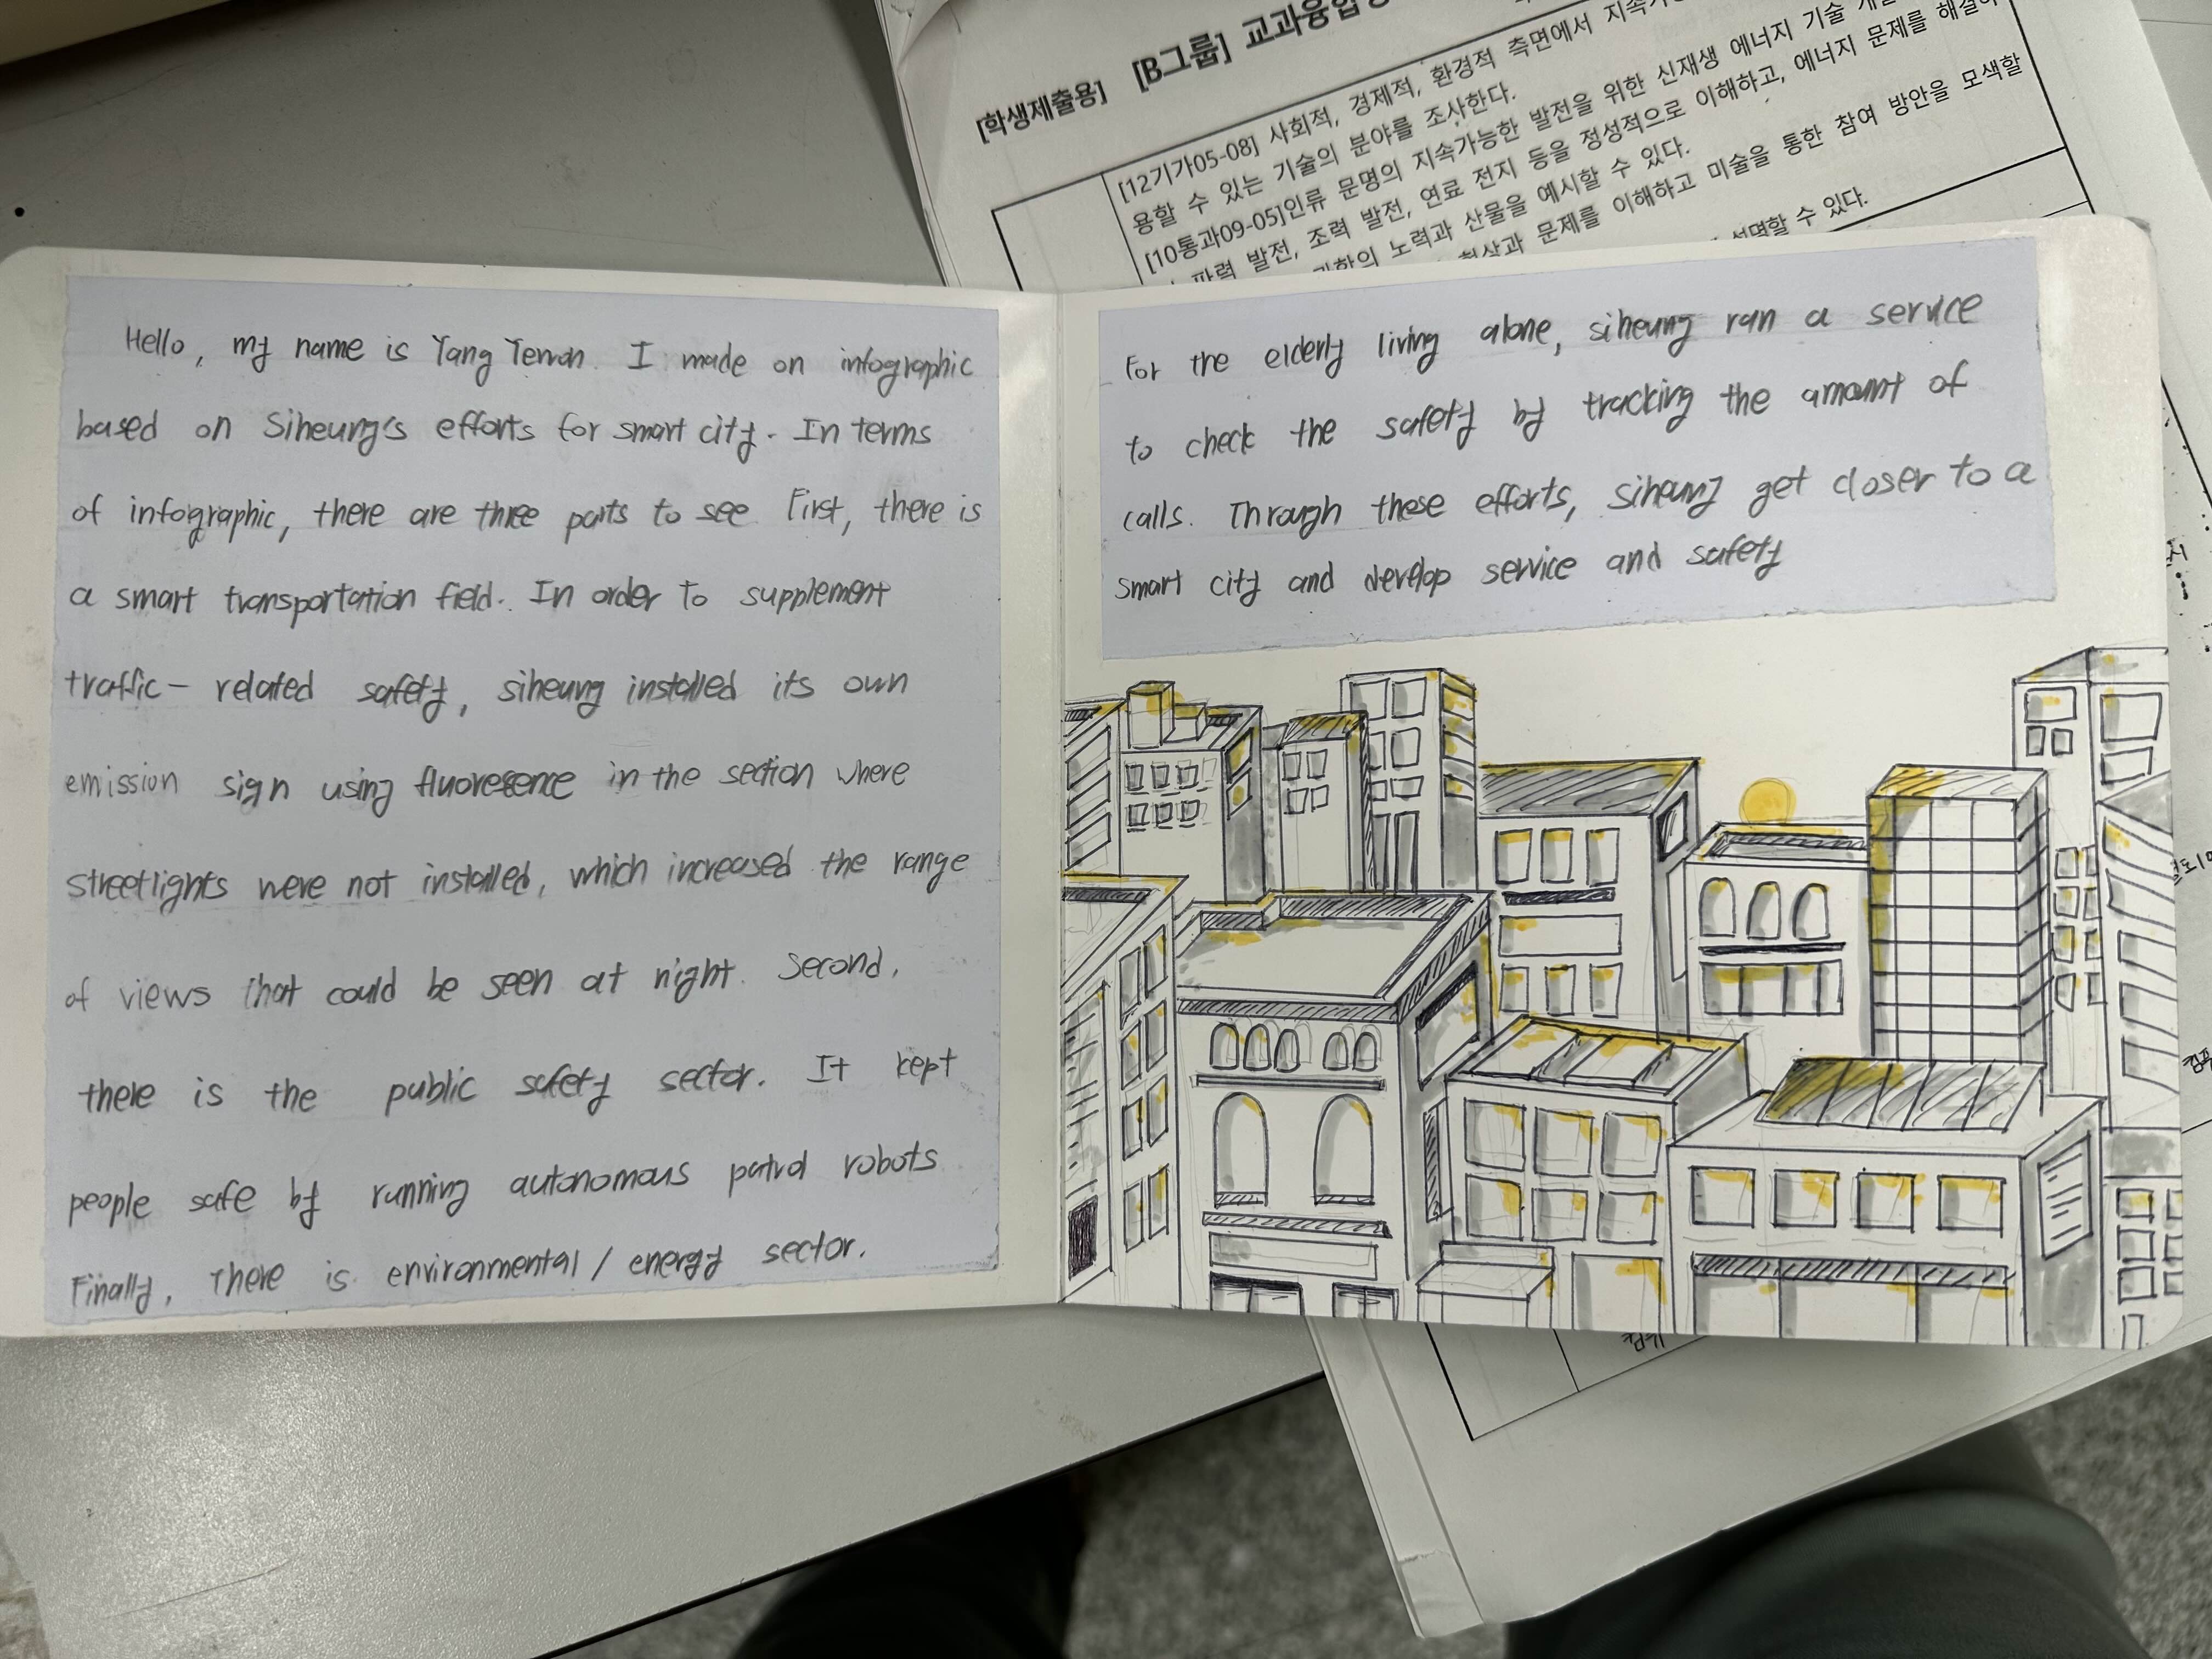 [학생제출용] [B그룹] 교과융합
[12기가05-08] 사회적, 경제적, 환경적 측면에서
용할 수 있는 기술의 분야를 조사한다.
[10통과09-05]인류 문명의 지속가능한 발전을 위한 신재생 에너지 기술
파력 발전, 조력 발전, 연료 전지 등을 정성적으로 이해하고, 에너지 문제를
노력과 산물을 예시할 수 있다.
문제를 이해하고 미술을 통한 참여 방안을 모색할
설명할 수 있다.
Hello, my name is Yang Yewon. I made on infographic
based on Siheung's efforts for smart city. In terms
of infographic, there are three parts to see. First, there is
a smart transportation field. In order to supplement
traffic-related safety, siheung installed its own
emission sign using in the section where
streetlights were not installed, which increased the range
of views that could be seen at night. Second,
there is the public safety sector. It kept
people safe by running autonomous patrol robots
Finally, There is environmental / energy sector.
For the elderly living alone, siheung ran a service
to check the safety by tracking the amount of
calls. Through these efforts, siheung get closer to a
smart city and develop service and safety